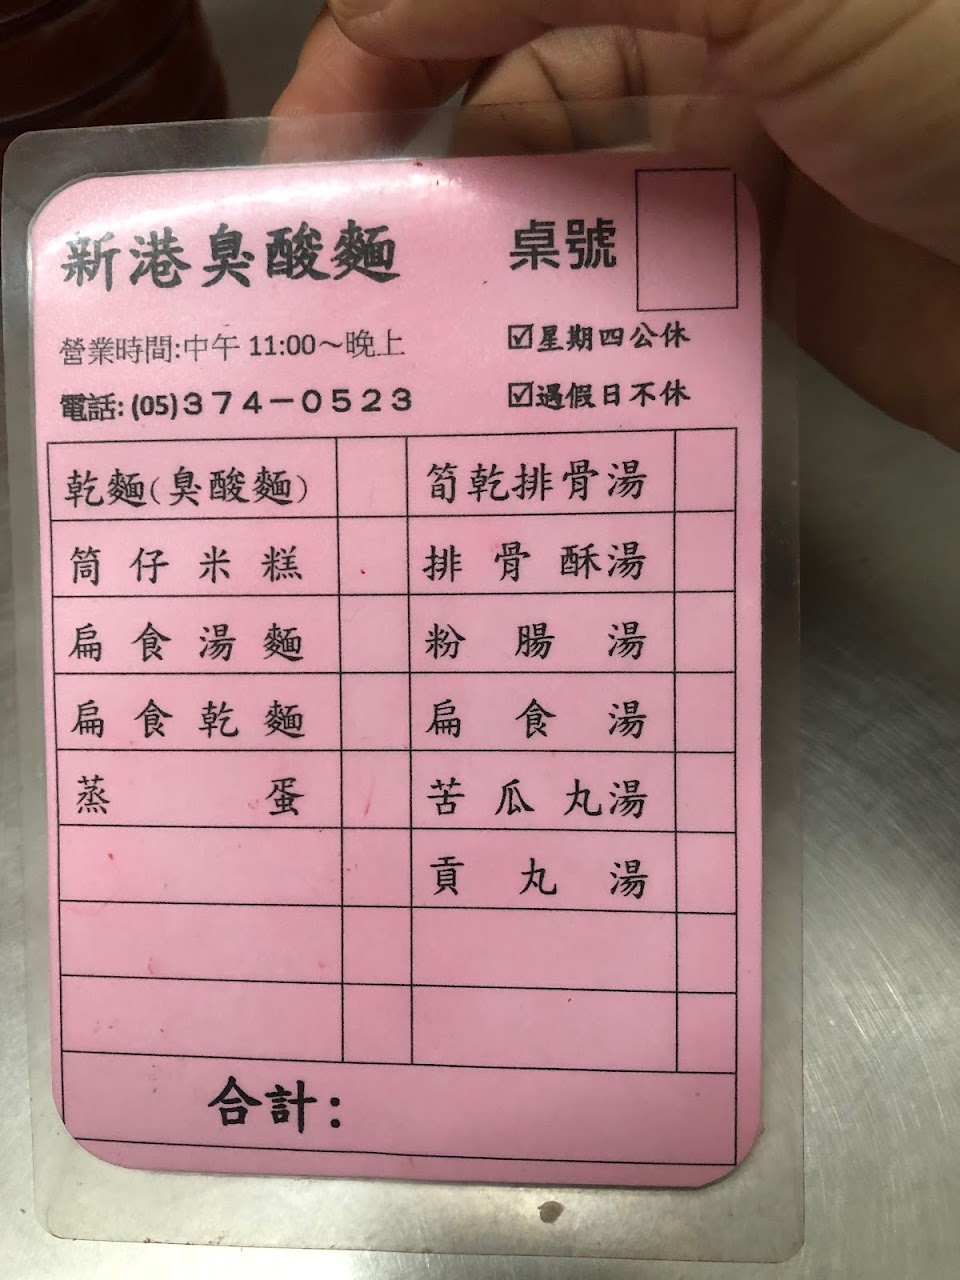 新港臭酸麵 桌號
營業時間:中午 11:00～晚上 ☑星期四公休
電話: (05)374－0523 ☑遇假日不休
乾麵(臭酸麵) 筍乾排骨湯
筒仔米糕 排骨酥湯
扁食湯麵 粉腸湯
扁食乾麵 扁食湯
蒸蛋 苦瓜丸湯
貢丸湯
合計: